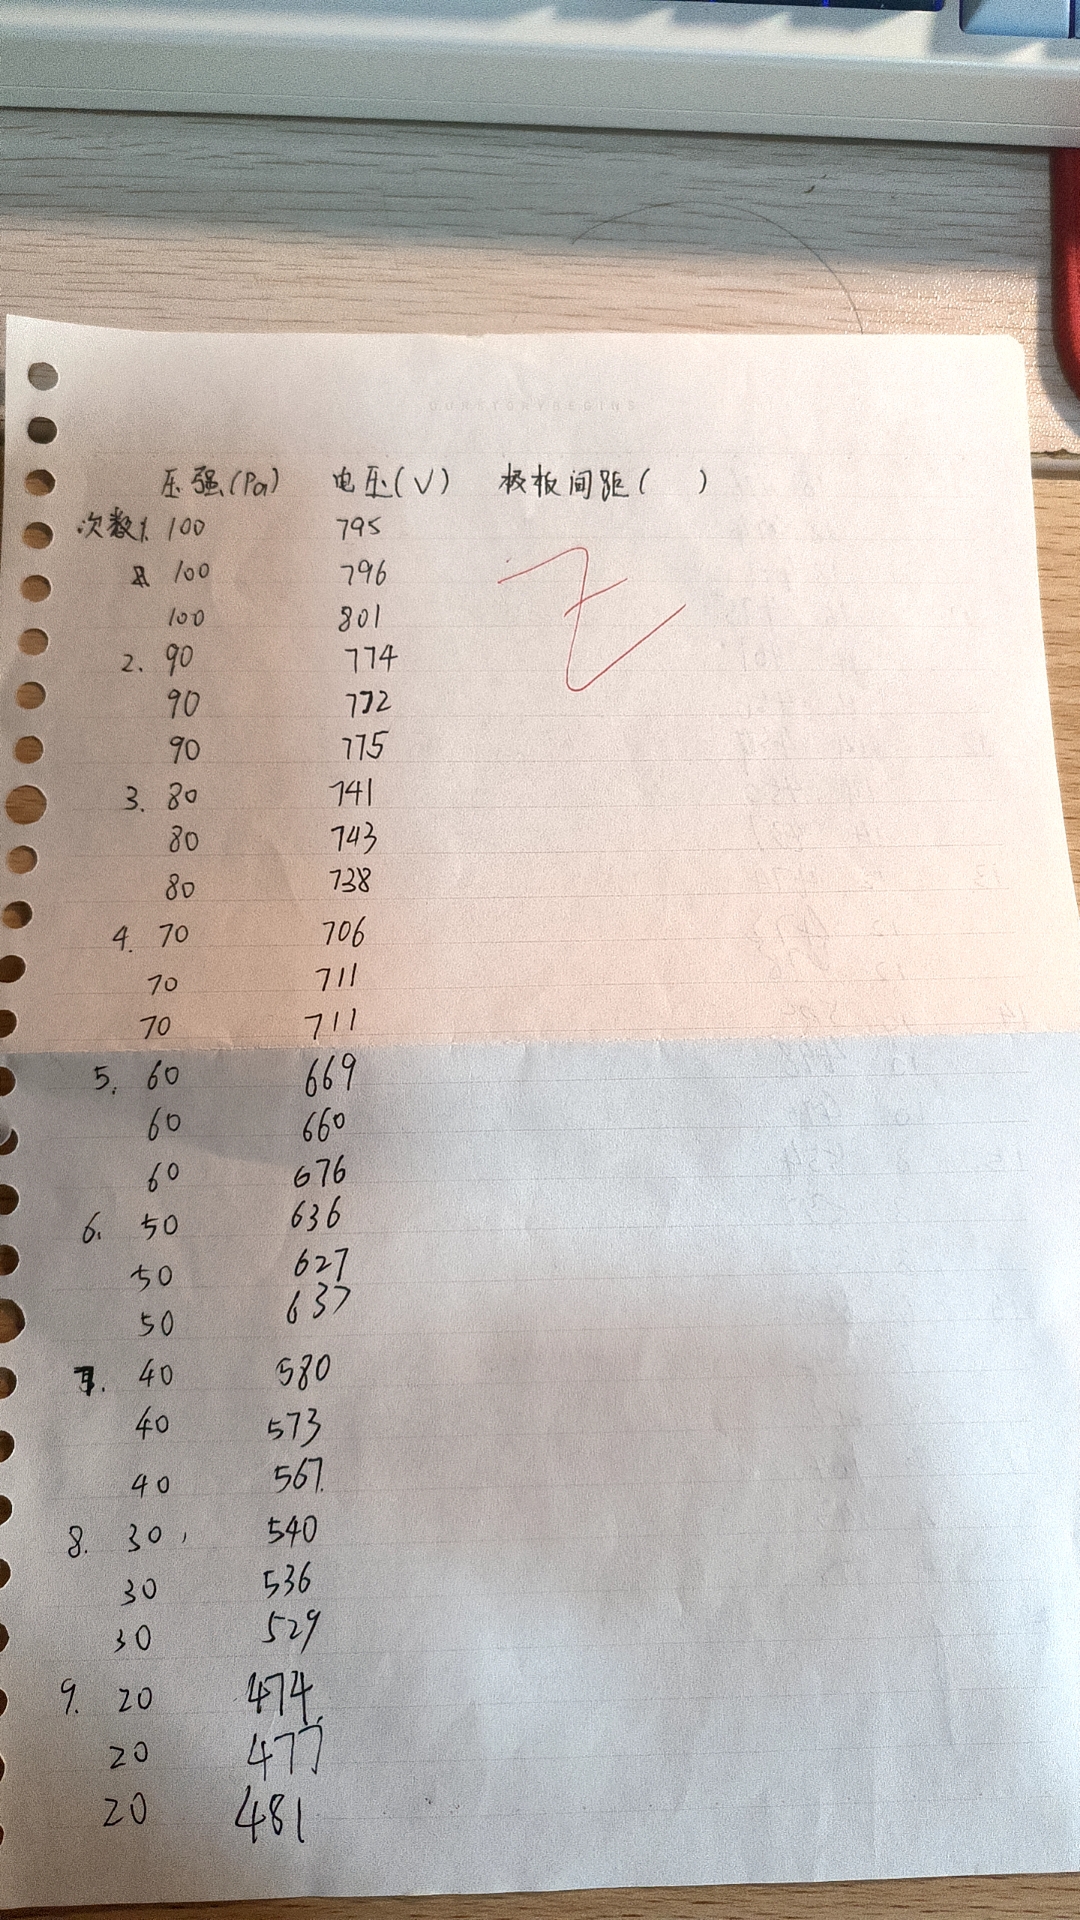 OURSTORYBEGINS
压强(Pa) 电压(V) 极板间距( )
次数1. 100 795
100 796
100 801
2. 90 774
90 772
90 775
3. 80 741
80 743
80 738
4. 70 706
70 711
70 711
5. 60 669
60 660
60 676
6. 50 636
50 627
50 637
7. 40 580
40 573
40 567.
8. 30, 540
30 536
30 529
9. 20 474
20 477
20 481